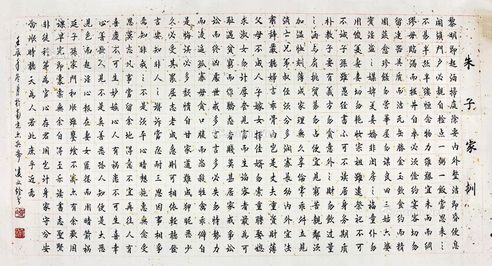 朱子家訓
黎明即起洒掃庭除要内外整潔既昏便息
關鎖門户必親自檢點一粥一飯當思來
不易半絲半縷恒念物力維艱宜未雨而綢
繆毋臨渴而掘井自奉必須儉約宴客切勿
留連器具質而潔瓦缶勝金玉飲食約而精
園蔬愈珍饈勿營華屋勿謀良田三姑六婆
實淫盗之媒婢美妾嬌非閨房之福童僕勿
用俊美妻妾切忌艷妝祖宗雖遠祭祀不可
不誠子孫雖愚經書不可不讀居身務期質
朴教子要有義方勿貪意外之財勿飲過量
之酒與肩挑貿易勿佔便宜見窮苦親鄰須
加温恤刻薄成家理無久享倫常乖舛立見
消亡兄弟叔侄須分多潤寡長幼内外宜法
肅辭嚴聽婦言乖骨肉豈是丈夫重資財薄
父母不成人子嫁女擇佳婿勿索重聘娶媳
求淑女勿計厚奩見富貴而生諂容者最可
耻遇貧窮而作驕態者賤莫甚居家戒争訟
訟則終凶處世戒多言言多必失勿恃勢力
而凌逼孤寡毋貪口腹而恣殺牲禽乖僻自
是悔誤必多頹惰自甘家道難成狎昵惡少
久必受其累屈志老成急則可相依輕聽發
言安知非人之譖訴當忍耐三思因事相争
焉知非我之不是須平心暗想施惠無念受
恩莫忘凡事當留餘地得意不宜再往人有
喜慶不可生妒嫉心人有禍患不可生喜幸
心善欲人見不是真善惡恐人知便是大惡
見色而起淫心報在妻女匿怨而用暗箭禍
延子孫家門和順雖饔飧不繼亦有餘歡國
課早完即囊橐無餘自得至樂讀書志在聖賢
爲官心存君國守分安
命順時聽天爲人若此庶乎近焉